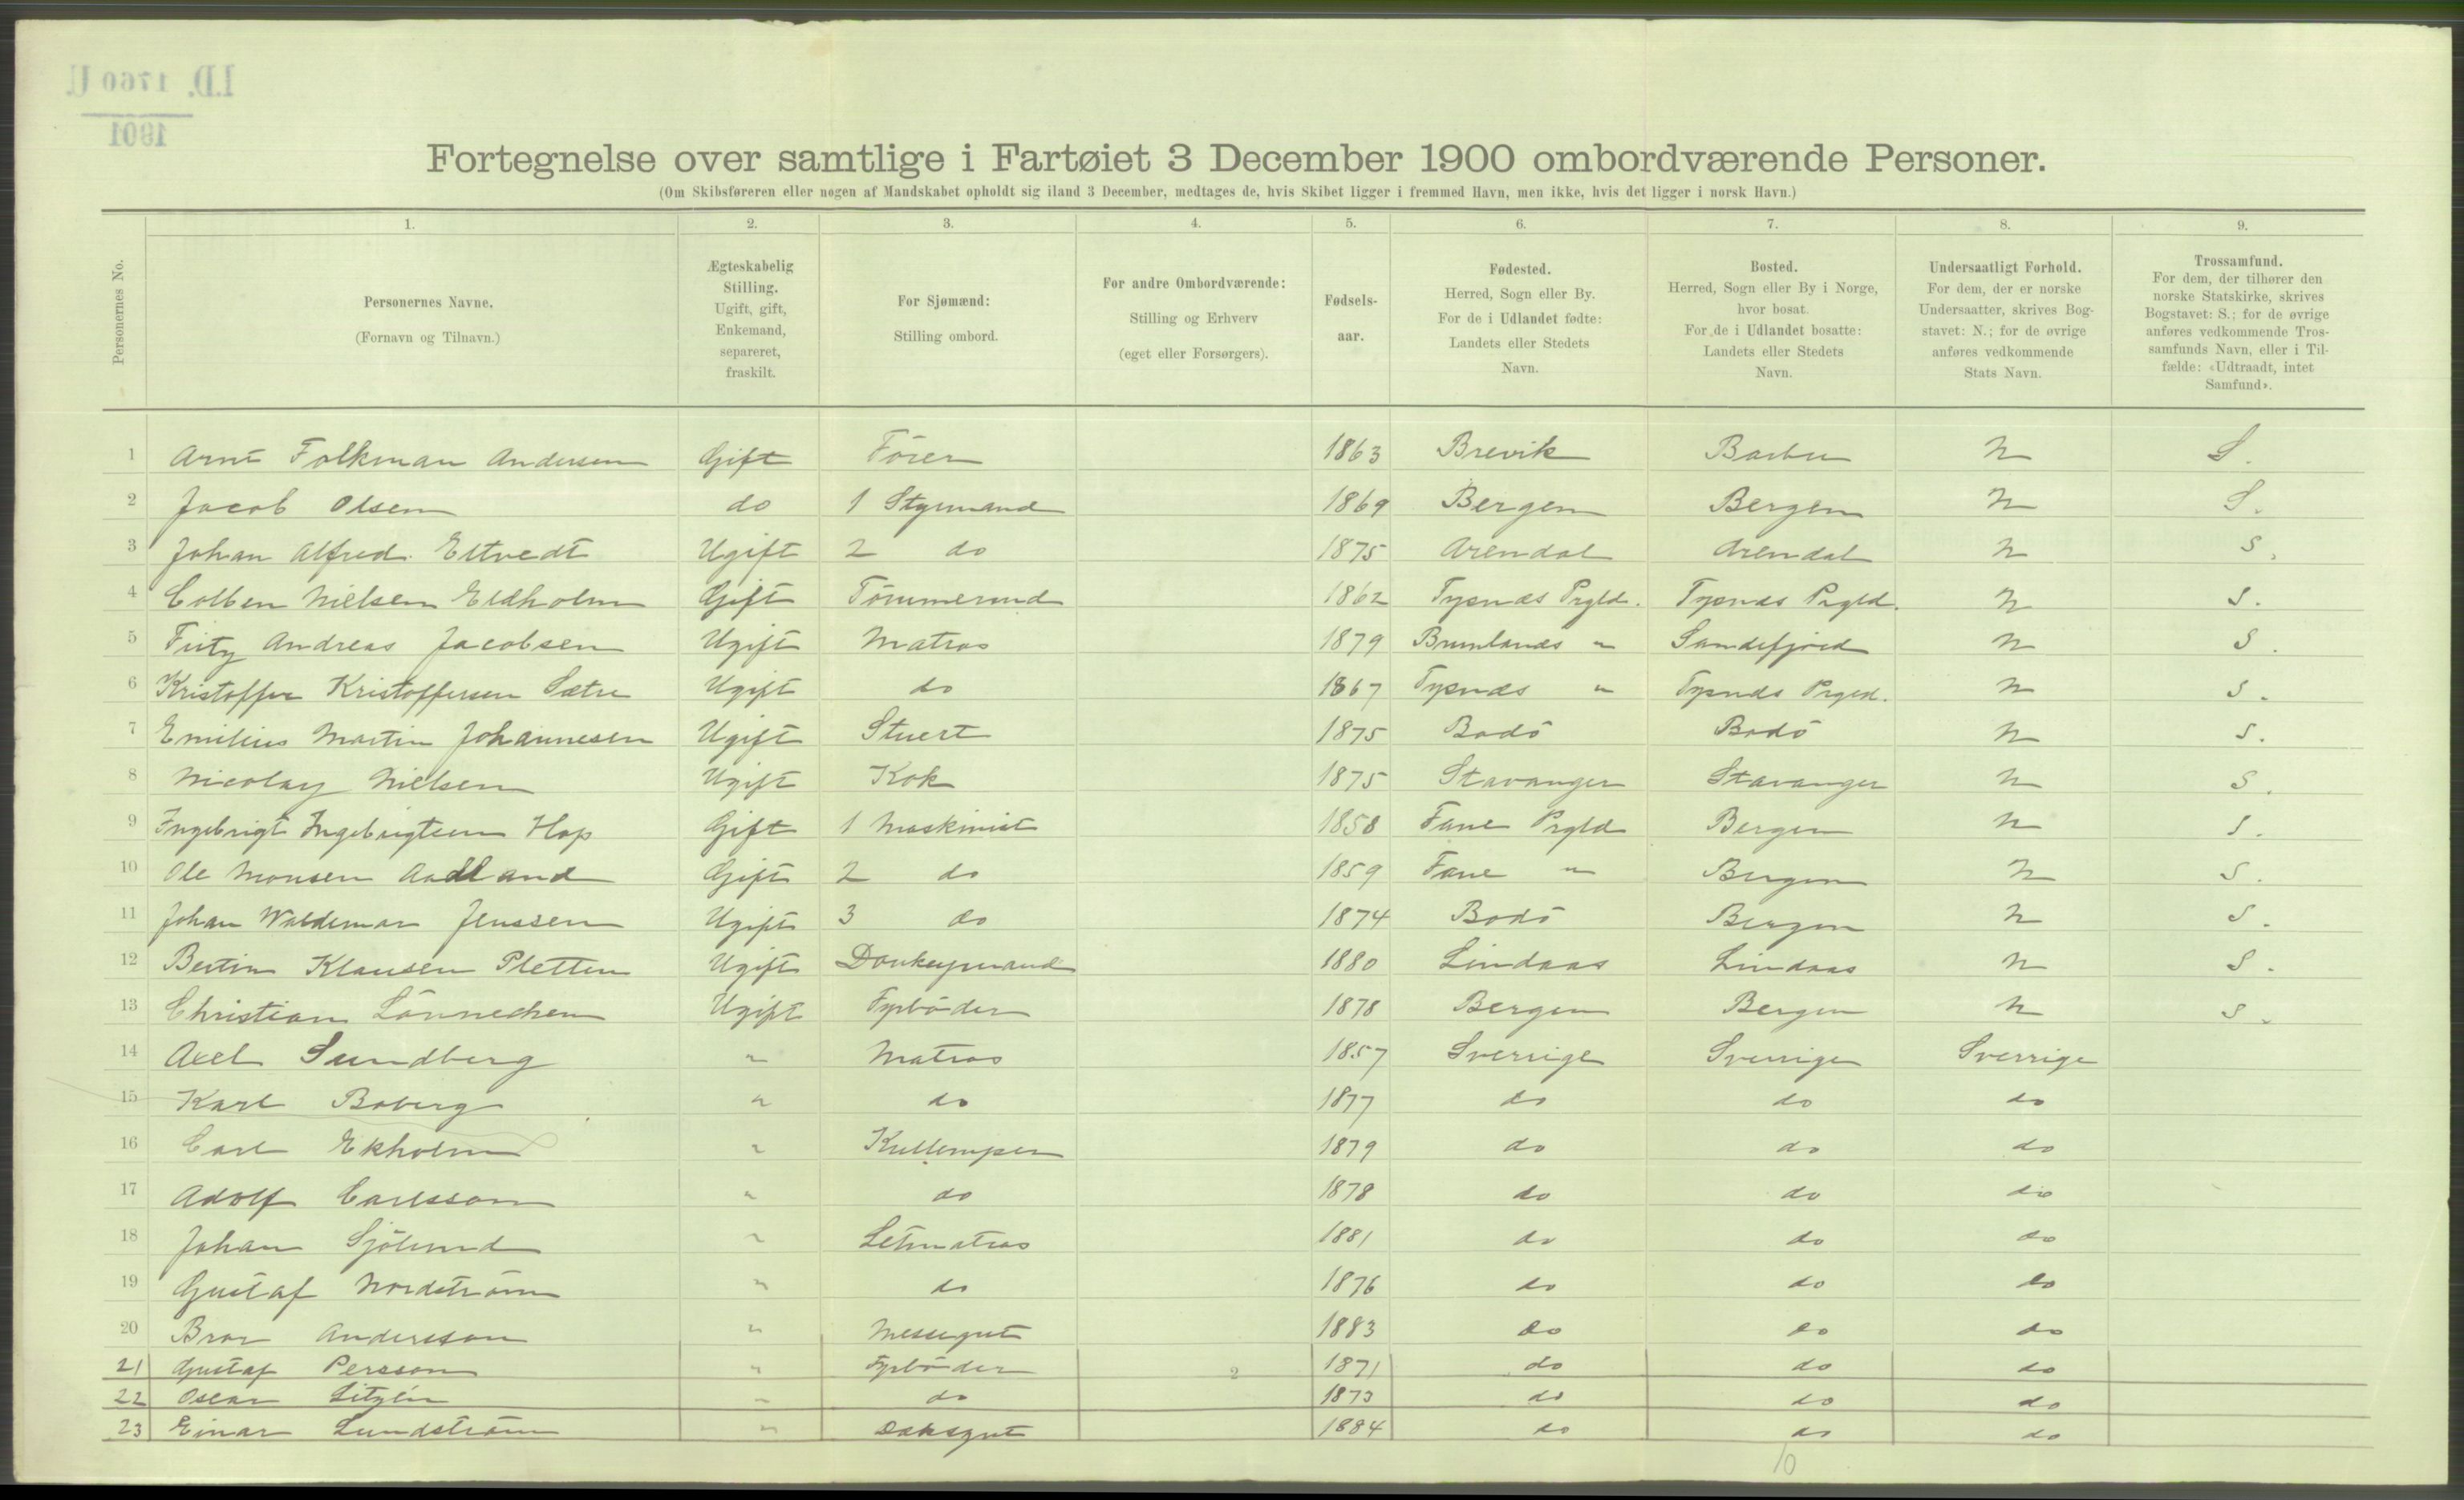 I.D. 1760 U
1901
Fortegnelse over samtlige i Fartøiet 3 December 1900 ombordværende Personer.
(Om Skibsføreren eller nogen af Mandskabet opholdt sig iland 3 December, medtages de, hvis Skibet ligger i fremmed Havn, men ikke, hvis det ligger i norsk Havn.)
Personernes No.
1. 2. 3. 4. 5. 6. 7. 8. 9.
Personernes Navne.
(Fornavn og Tilnavn.)
Ægteskabelig
Stilling.
Ugift, gift,
Enkemand,
separeret,
fraskilt.
For Sjømænd:
Stilling ombord.
For andre Ombordværende:
Stilling og Erhverv
(eget eller Forsørgers).
Fødsels-
aar.
Fødested.
Herred, Sogn eller By.
For de i Udlandet fødte:
Landets eller Stedets
Navn.
Bosted.
Herred, Sogn eller By i Norge,
hvor bosat.
For de i Udlandet bosatte:
Landets eller Stedets
Navn.
Undersaatligt Forhold.
For dem, der er norske
Undersaatter, skrives Bog-
stavet: N.; for de øvrige
anføres vedkommende
Stats Navn.
Trossamfund.
For dem, der tilhører den
norske Statskirke, skrives
Bogstavet: S.; for de øvrige
anføres vedkommende Tros-
samfunds Navn, eller i Til-
fælde: «Udtraadt, intet
Samfund».
1 Arnt Folkman Andersen Gift Förer 1863 Brevik Barbu N S.
2 Jacob Olsen do 1 Styrmand 1869 Bergen Bergen N S.
3 Johan Alfred Eltvedt Ugift 2 do 1875 Arendal Arendal N S.
4 Colben Nielsen Eldholm Gift Tömmermd 1862 Tysnæs Prgld. Tysnæs Prgld. N S.
5 Andreas Jacobsen Ugift Matros 1879 Brunlanæs " Sandefjord N S.
6 Kristoffer Kristoffersen Sætre Ugift do 1867 Tysnæs " Tysnæs Prgld. N S.
7 Emilius Martin Johannesen Ugift Stuert 1875 Bodö Bodö N S.
8 Nicolay Nielsen Ugift Kok 1875 Stavanger Stavanger N S.
9 Ingebrigt Ingebrigtsen Hop Gift 1 Maskinist 1858 Fane Prgld Bergen N S.
10 Ole Monsen Aadland Gift 2 do 1859 Fane " Bergen N S.
11 Johan Waldemar Jenssen Ugift 3 do 1874 Bodö Bergen N S.
12 Bertin Klausen Pletten Ugift Donkeymand 1880 Lindaas Lindaas N S.
13 Christian Lönnechen Ugift Fyrböder 1878 Bergen Bergen N S.
14 Axel Sundberg " Matros 1857 Sverrige Sverrige Sverrige
15 Karl Boberg " do 1877 do do do
16 Carl Ekholm " Kullemper 1879 do do do
17 Adolf Carlsson " do 1878 do do do
18 Johan Sjölund " Letmatros 1881 do do do
19 Gustaf Nordström " do 1876 do do do
20 Bror Andersson " Messegut 1883 do do do
21 Gustaf Persson " Fyrböder 2 1871 do do do
22 Oscar Litzén " do 1873 do do do
23 Einar Lundström " Daksgut 1884 do do do
10